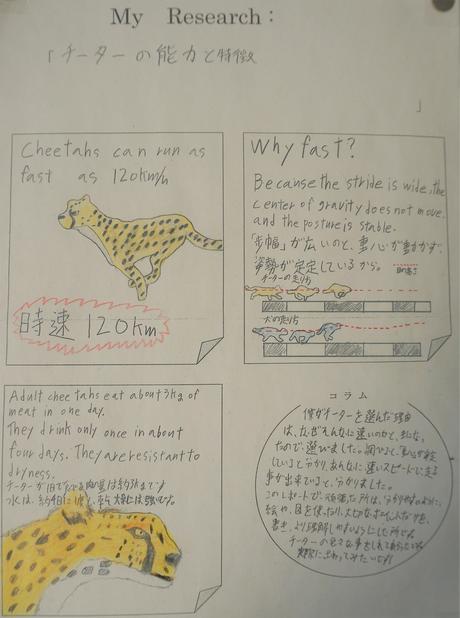 My Research:
「チーターの能力と特徴
」
Cheetahs can run as
fast as 120km/h
時速 120km
Why fast?
Because the stride is wide, the
center of gravity does not move,
and the posture is stable.
「歩幅」が広いのと、重心が動かず、
姿勢が定定しているから。
チーターの走り方
犬の走り方
Adult cheetahs eat about 3kg of
meat in one day.
They drink only once in about
four days. They are resistant to
dryness.
チーターが1日で
水は、約4日に
コラム
僕がチーターを選んだ理由
は、なぜそんなに速いのかと、気になっ
たので、選びました。調べると、重心が安定
していると分かり、あんなに速いスピードで走る
事が出来ていると、分かりました。
このレポートで、頑張った所は、分かりやすいように、
絵や、図を使ったり、大切なポイントだけを、
書き、より理解しやすいようにした所です。
チーターの色々な事を
実際に